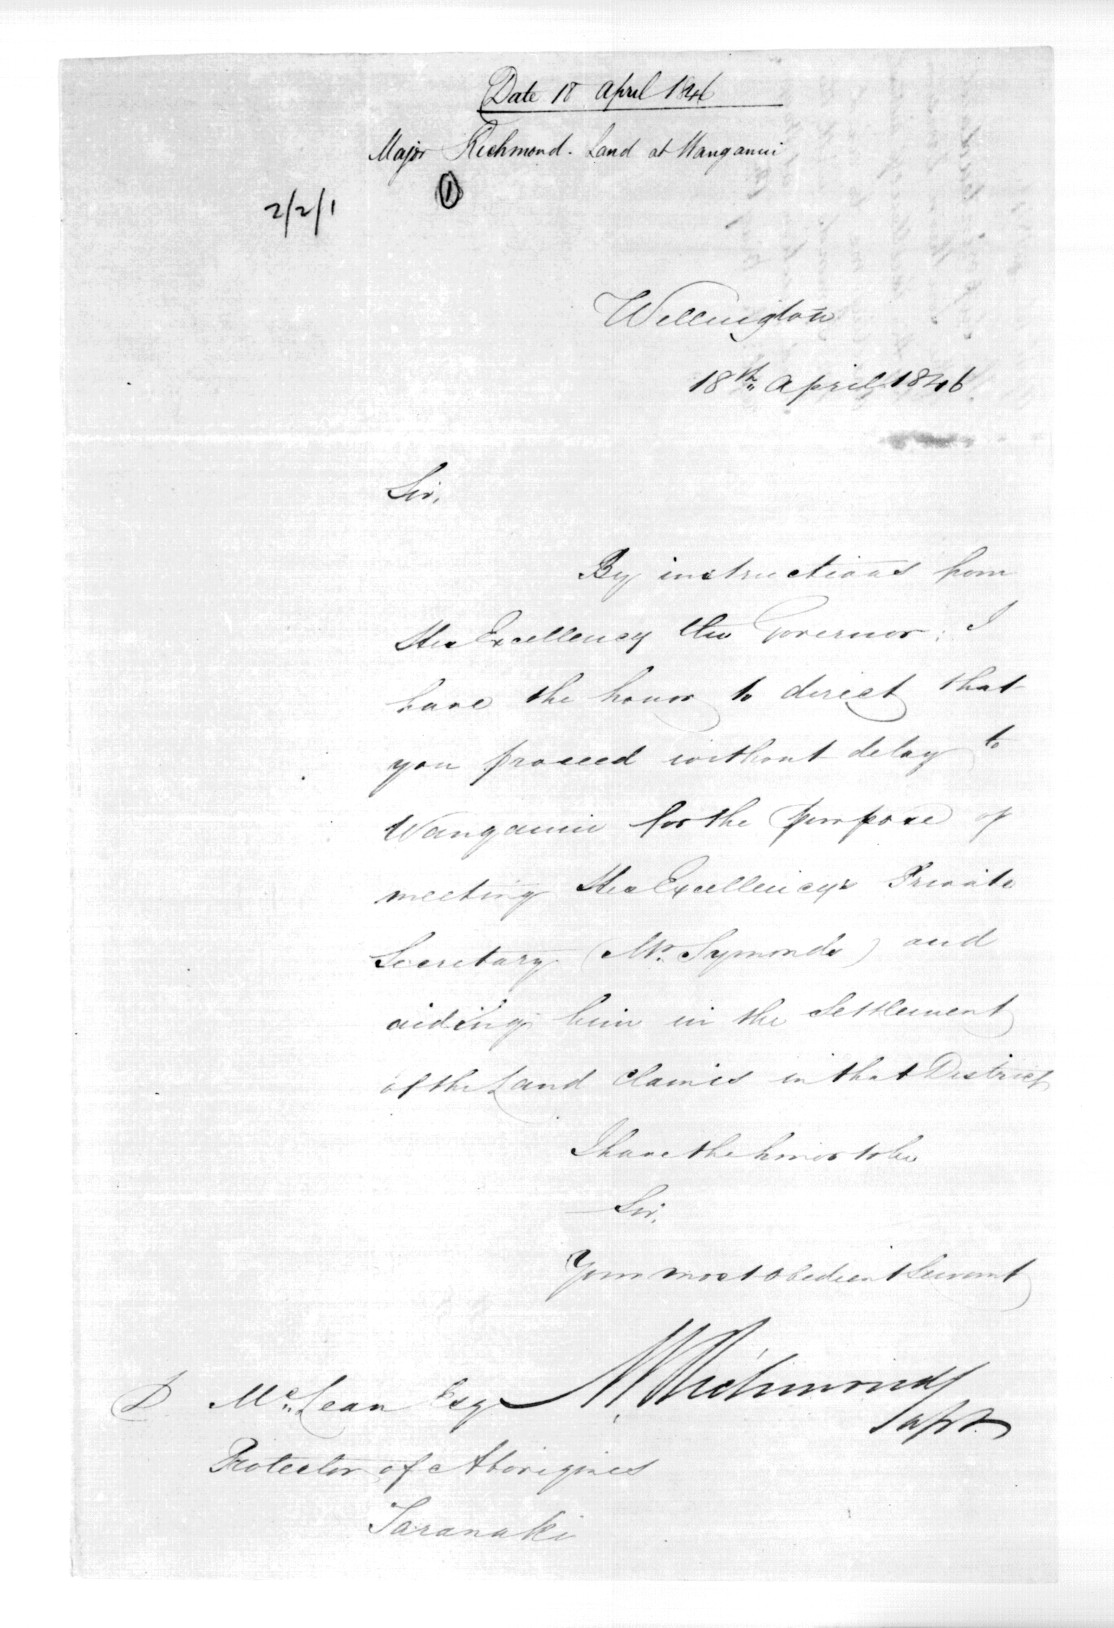 Date 18 April 1846
Major Richmond. Land at Wanganui
1
2/2/1
Wellington
18th April 1846
Sir,
By instructions from
His Excellency the Governor, I
have the honor to direct that
you proceed without delay to
Wanganui for the purpose of
meeting His Excellencys Private
Secretary (Mr. Symonds) and
aiding him in the Settlement
of the Land Claims in that District
I have the honor to be
Sir,
Your most obedient Servant
M. Richmond
Supt.
D McLean Esq
Protector of Aborigines
Taranaki